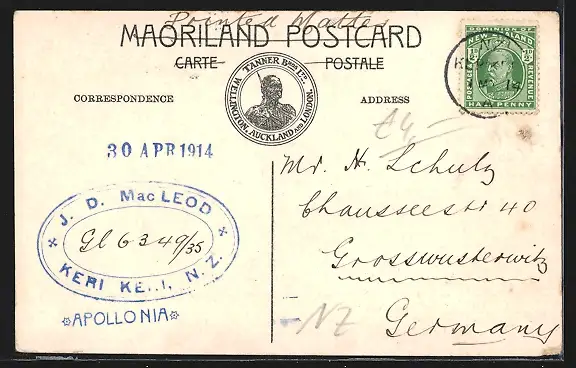 Printed Matter
MAORILAND POSTCARD
CARTE POSTALE
TANNER BROS LTD.
WELLINGTON, AUCKLAND AND LONDON.
CORRESPONDENCE
ADDRESS
DOMINION OF
NEW ZEALAND
POSTAGE
REVENUE
HALF PENNY
14
30 APR 1914
J. D. MacLEOD
Gl 6349/35
KERI KERI, N.Z.
APOLLONIA
Mr. H. Schulz
Chausseestr 40
Grosswusterwitz
Germany
NZ